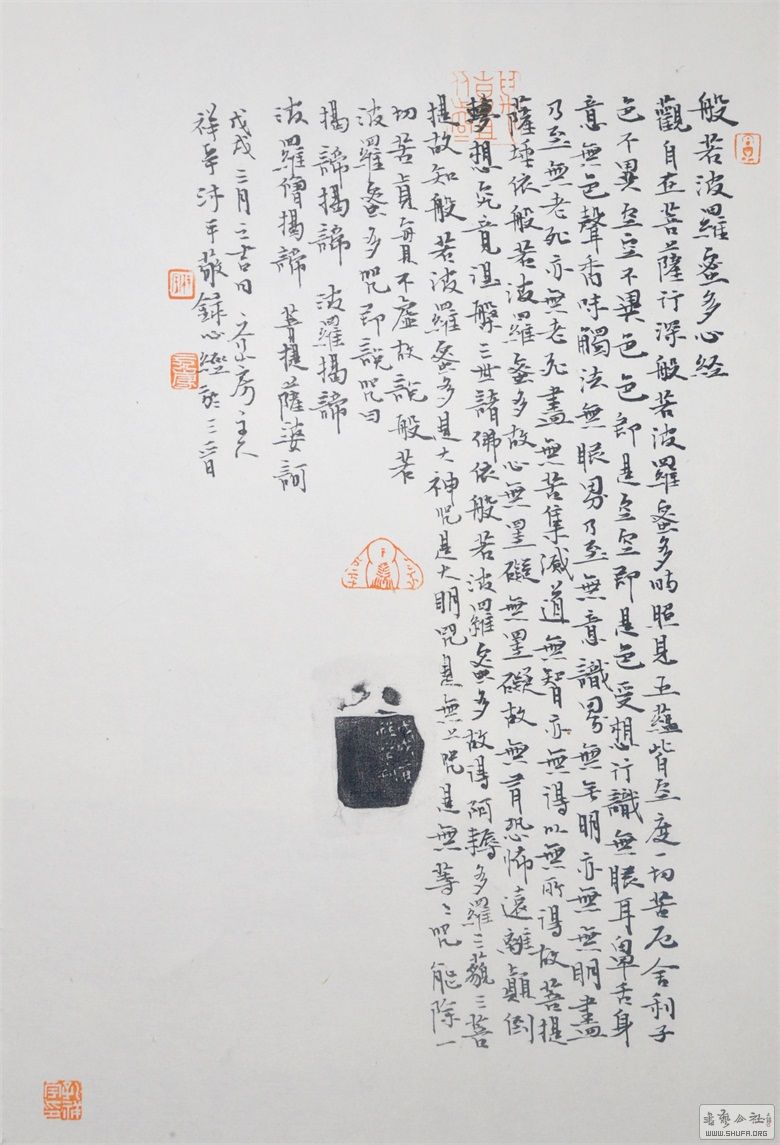 般若波羅蜜多心经
觀自在菩薩行深般若波羅蜜多時照見五蘊皆空度一切苦厄舍利子
色不異空空不異色色即是空空即是色受想行識無眼耳鼻舌身
意無色聲香味觸法無眼界乃至無意識界無無明亦無無明盡
乃至無老死亦無老死盡無苦集滅道無智亦無得以無所得故菩提
薩埵依般若波羅蜜多故心無罣礙無罣礙故無有恐怖遠離顛倒
夢想究竟涅槃三世諸佛依般若波羅蜜多故得阿耨多羅三藐三菩
提故知般若波羅蜜多是大神咒是大明咒是無上咒是無等〻咒能除一
切苦真實不虛故說般若
波羅蜜多咒即說咒曰
揭諦揭諦 波羅揭諦
波羅僧揭諦 菩提薩婆訶
戊戌三月之吉日房主人
祥沐手敬録心經於三
書藝公社
WWW.SHUFA.ORG